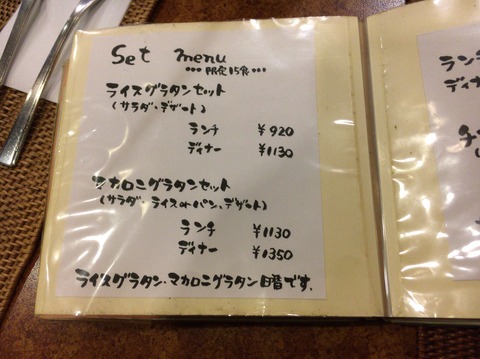 Set menu
… 限定15食 …
ライスグラタンセット
(サラダ・デザート)
ランチ ¥920
ディナー ¥1130
マカロニグラタンセット
(サラダ・ライス or パン、デザート)
ランチ ¥1130
ディナー ¥1350
ライスグラタン・マカロニグラタン 日替です.
ランチ
ディナ
チ